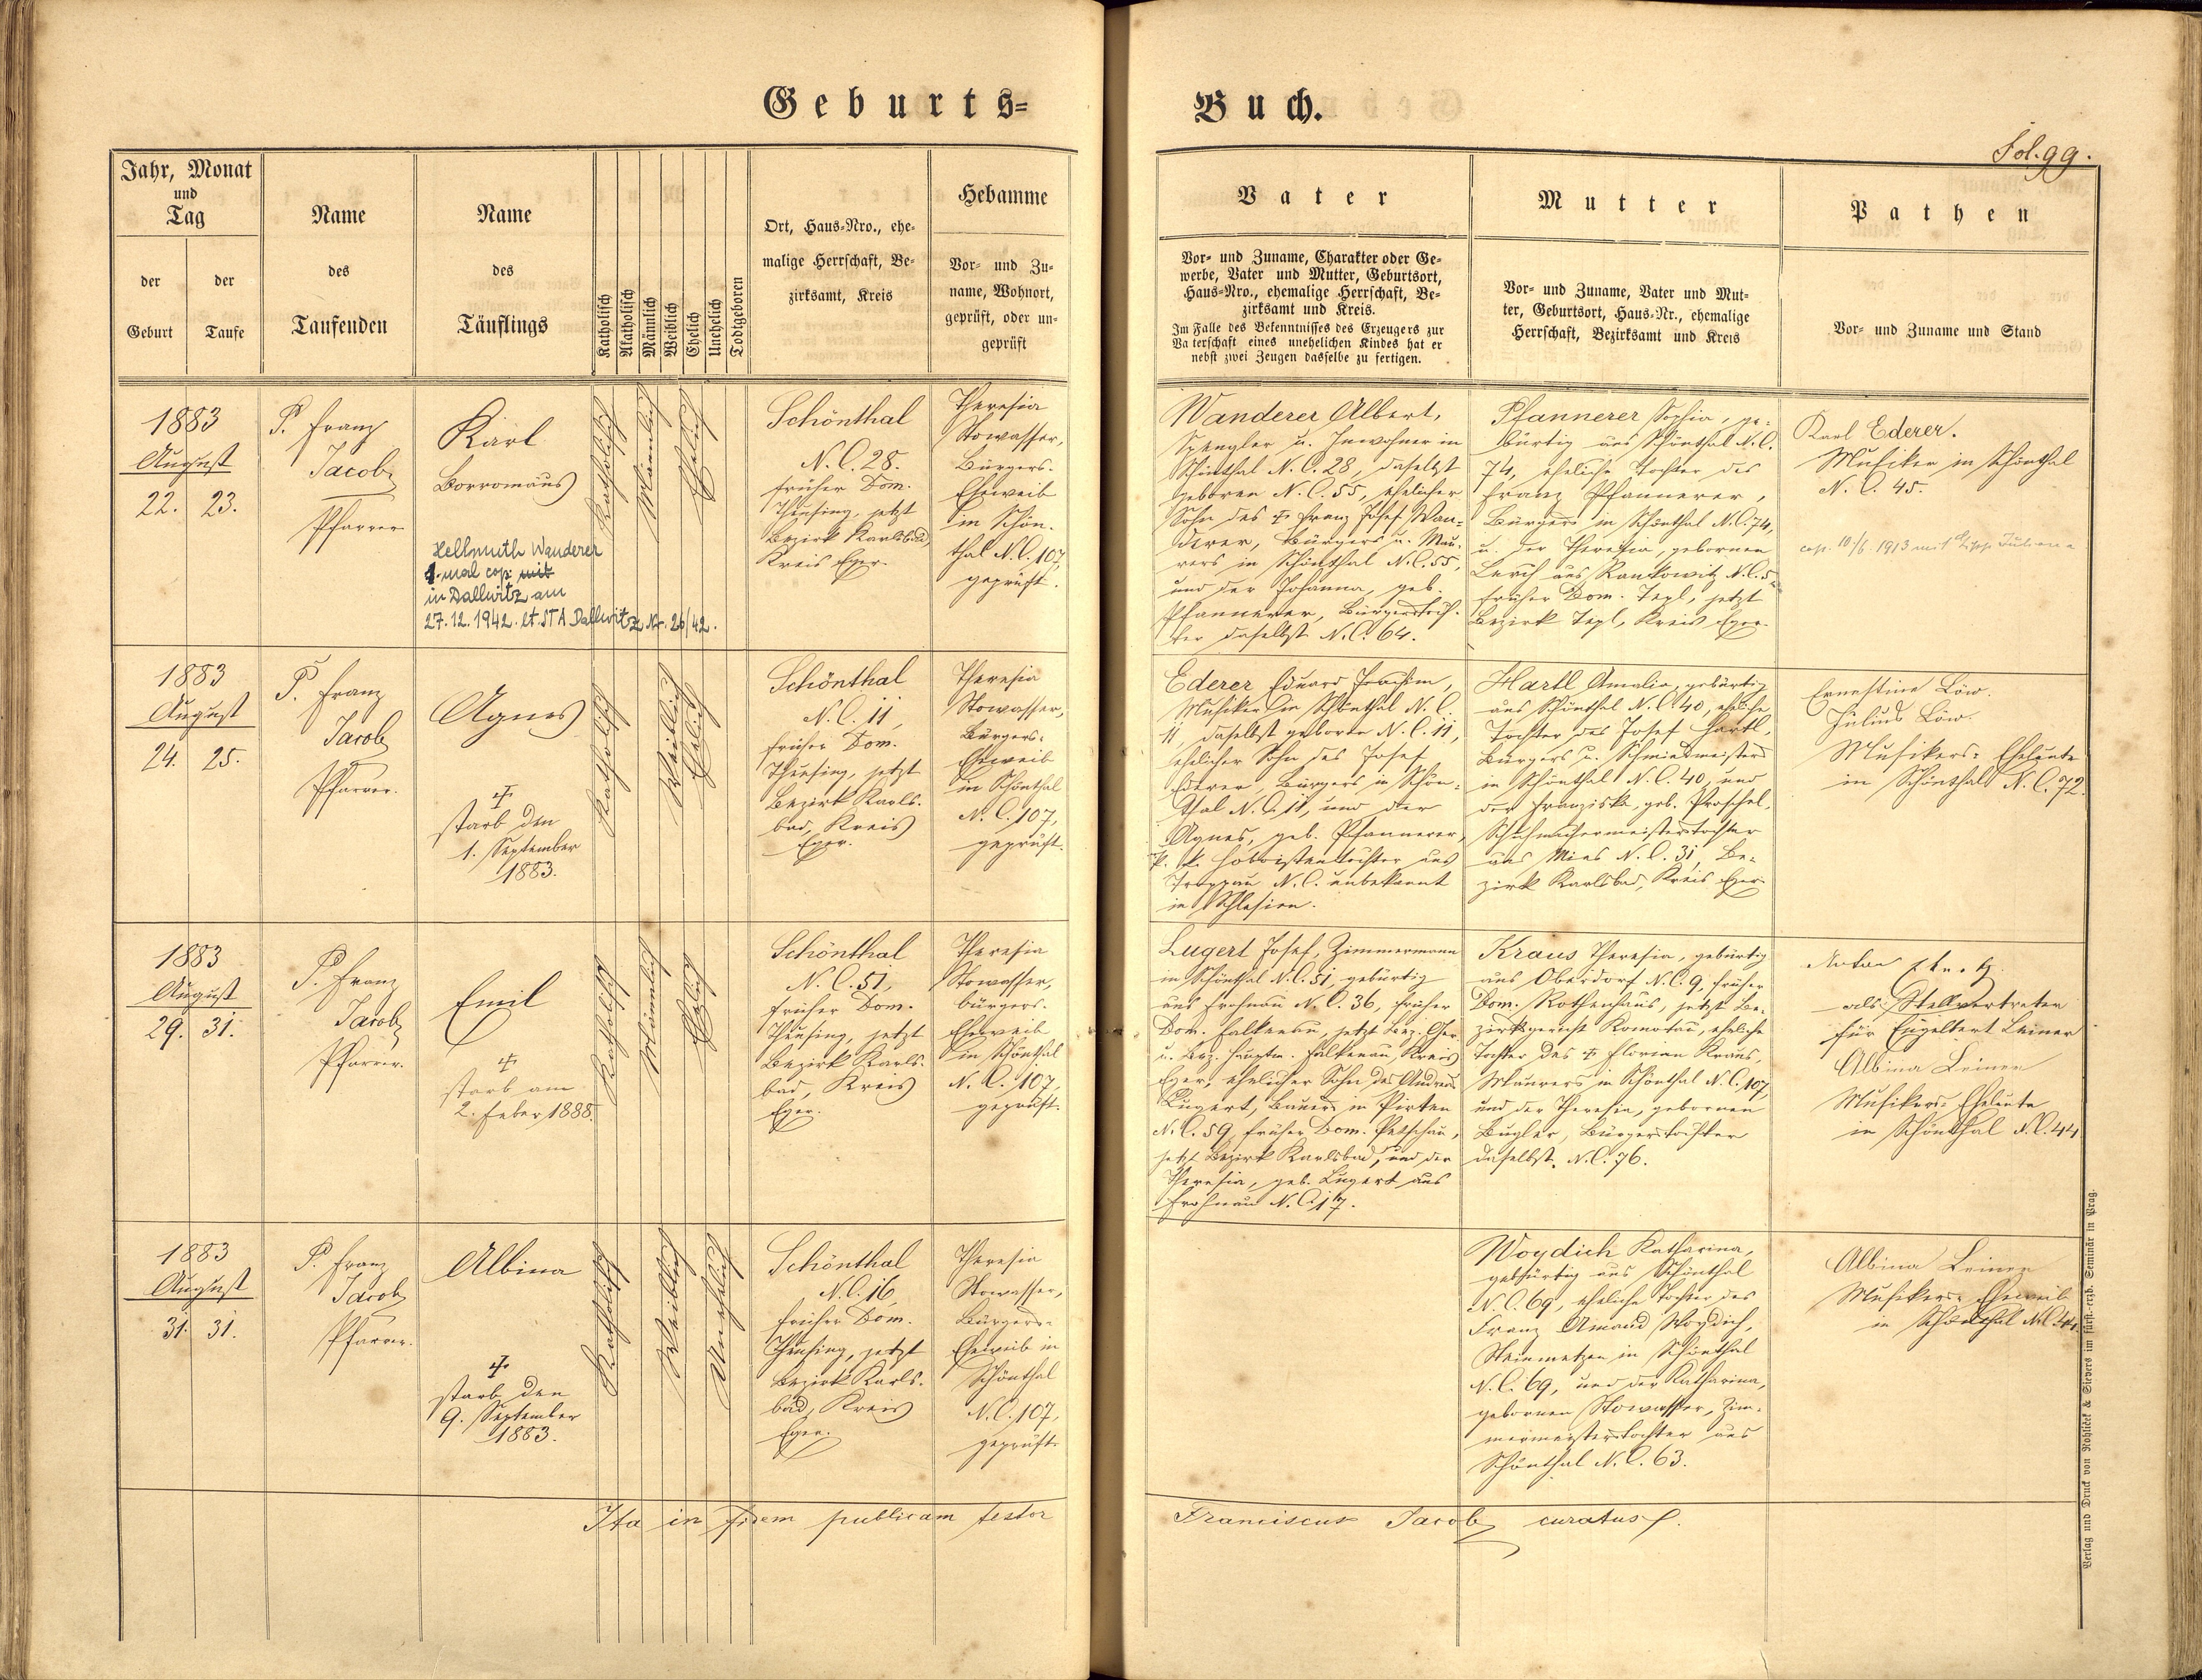 Geburts=
Buch.
Fol. 99.
Jahr, Monat
und
Tag
der
Geburt
der
Taufe
Name
des
Taufenden
Name
des
Täuflings
Katholisch
Akatholisch
Männlich
Weiblich
Ehelich
Unehelich
Todtgeboren
Ort, Haus=Nro., ehe=
malige Herrschaft, Be=
zirksamt, Kreis
Hebamme
Vor= und Zu=
name, Wohnort,
geprüft, oder un=
geprüft
Vater
Vor= und Zuname, Charakter oder Ge=
werbe, Vater und Mutter, Geburtsort,
Haus=Nro., ehemalige Herrschaft, Be=
zirksamt und Kreis.
Im Falle des Bekenntnisses des Erzeugers zur
Vaterschaft eines unehelichen Kindes hat er
nebst zwei Zeugen dasselbe zu fertigen.
Mutter
Vor= und Zuname, Vater und Mut=
ter, Geburtsort, Haus=Nr., ehemalige
Herrschaft, Bezirksamt und Kreis
Pathen
Vor= und Zuname und Stand
1883
August
22. 23.
P. Franz
Jacob
Pfarrer
Karl
Borromäus
Hellmuth Wanderer
1. mal cop. mit
in Dallwitz am
27.12.1942. lt. STA Dallwitz Nr. 26/42.
Katholisch
Männlich
Ehelich
Schönthal
N. C. 28.
früher Dom.
Theusing, jetzt
Bezirk Karlsbad,
Kreis Eger.
Theresia
Stowasser,
Bürgers=
Eheweib
in Schön=
thal N. C. 107,
geprüft.
Wanderer Albert,
Spengler u. Inwohner in
Schönthal N. C. 28, daselbst
geboren N. C. 55, ehelicher
Sohn des † Franz Josef Wan=
derer, Bürgers u. Mau=
rers in Schönthal N. C. 55,
und der Johanna, geb.
Pfannerer, Bürgerstoch=
ter daselbst N. C. 64.
Pfannerer Sophia, ge=
bürtig aus Schönthal N. C.
74, eheliche Tochter des
Franz Pfannerer,
Bürgers in Schönthal N. C. 74,
u. der Theresia, gebornen
Lerch aus Rankowitz N. C. 5
früher Dom. Tepl, jetzt
Bezirk Tepl, Kreis Eger.
Karl Ederer.
Musiker in Schönthal
N. C. 45.
cop. 10/6 1913 mit Juliana
1883
August
24. 25.
P. Franz
Jacob
Pfarrer.
Agnes
†
starb den
1. September
1883.
Katholisch
Weiblich
Ehelich
Schönthal
N. C. 11,
früher Dom.
Theusing, jetzt
Bezirk Karls=
bad, Kreis
Eger.
Theresia
Stowasser,
Bürgers=
Eheweib
in Schönthal
N. C. 107,
geprüft.
Ederer Eduard Joachim,
Musiker in Schönthal N. C.
11, daselbst geboren N. C. 11,
ehelicher Sohn des Josef
Ederer, Bürgers in Schön=
thal N. C. 11, und der
Agnes, geb. Pfannerer,
k. k. Hoboistentochter aus
Troppau N. C. unbekannt
in Schlesien.
Hartl Amalia, gebürtig
aus Schönthal N. C. 40, eheliche
Tochter des Josef Hartl,
Bürgers u. Schmiedmeisters
in Schönthal N. C. 40, und
der Franziska, geb. Proschel,
Schuhmachermeisterstochter
aus Mies N. C. 31, Be=
zirk Karlsbad, Kreis Eger.
Ernestine Löw.
Julius Löw.
Musikers= Eheleute
in Schönthal N. C. 72.
1883
August
29. 31.
P. Franz
Jacob
Pfarrer.
Emil
†
starb am
2. Feber 1888.
Katholisch
Männlich
Ehelich
Schönthal
N. C. 51,
früher Dom.
Theusing, jetzt
Bezirk Karls=
bad, Kreis
Eger.
Theresia
Stowasser,
bürgers=
Eheweib
in Schönthal
N. C. 107,
geprüft.
Lugert Josef, Zimmermann
in Schönthal N. C. 51, gebürtig
aus Frohnau N. C. 36, früher
Dom. Falkenau, jetzt Bez. Ger.
u. Bez. Hauptm. Falkenau, Kreis
Eger, ehelicher Sohn des Andreas
Lugert, Bauers in Pirten
N. C. 59, früher Dom. Petschau,
jetzt Bezirk Karlsbad, und der
Theresia, geb. Lugert aus
Frohnau N. C. 17.
Kraus Theresia, gebürtig
aus Oberdorf N. C. 9, früher
Dom. Rothenhaus, jetzt Be=
zirksgericht Komotau, eheliche
Tochter des † Florian Kraus,
Maurers in Schönthal N. C. 107,
und der Theresia, gebornen
Bugler, Bürgerstochter
daselbst N. C. 76.
Anton
als Stellvertreter
für Engelbert Leiner
Albina Leiner
Musikers= Eheleute
in Schönthal N. C. 44
1883
August
31. 31.
P. Franz
Jacob
Pfarrer.
Albina
†
starb den
9. September
1883.
Katholisch
Weiblich
Unehelich
Schönthal
N. C. 16,
früher Dom.
Theusing, jetzt
Bezirk Karls=
bad, Kreis
Eger.
Theresia
Stowasser,
Bürgers=
Eheweib in
Schönthal
N. C. 107,
geprüft.
Woydich Katharina,
gebürtig aus Schönthal
N. C. 69, eheliche Tochter des
Franz Amand Woydich,
Steinmetzen in Schönthal
N. C. 69, und der Katharina,
gebornen Stowasser, Zim=
mermeisterstochter aus
Schönthal N. C. 63.
Albina Leiner
Musikers= Eheweib
in Schönthal N. C. 44
Ita in fidem publicam testor
Franciscus Jacob curatus
Verlag und Druck von Rohlicek & Sievers im fürst.-erzb. Seminär in Prag.